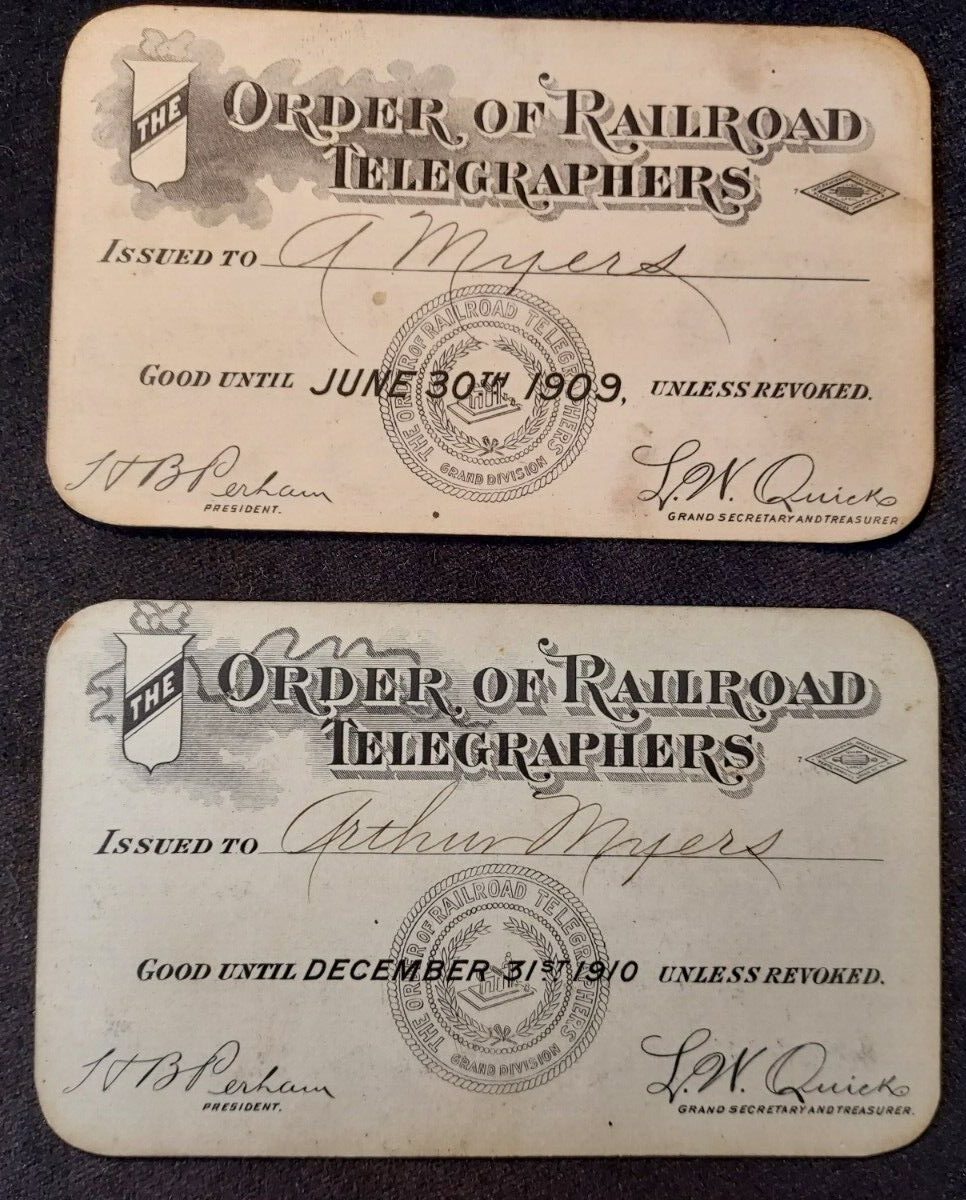 THE
ORDER OF RAILROAD
TELEGRAPHERS
ISSUED TO A Myers
THE ORDER OF RAILROAD TELEGRAPHERS
GRAND DIVISION
GOOD UNTIL JUNE 30TH 1909, UNLESS REVOKED.
H B Perham
PRESIDENT.
L.W. Quick
GRAND SECRETARY AND TREASURER.
THE
ORDER OF RAILROAD
TELEGRAPHERS
ISSUED TO Arthur Myers
THE ORDER OF RAILROAD TELEGRAPHERS
GRAND DIVISION
GOOD UNTIL DECEMBER 31ST 1910 UNLESS REVOKED.
H B Perham
PRESIDENT.
L.W. Quick
GRAND SECRETARY AND TREASURER.